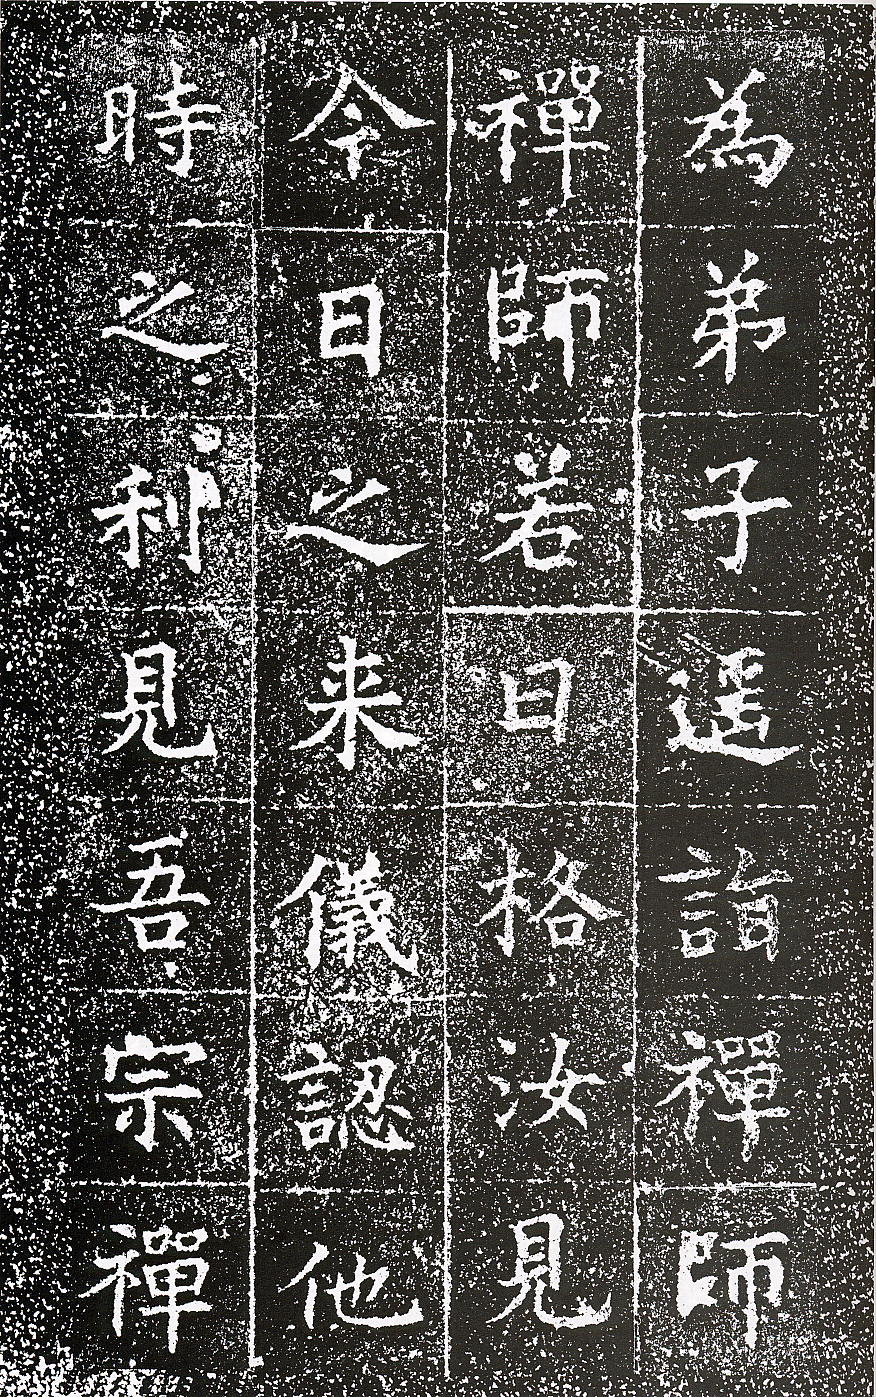 為弟子遥詣禪師
禪師若日格汝見
今日之来儀認他
時之利見吾宗禪